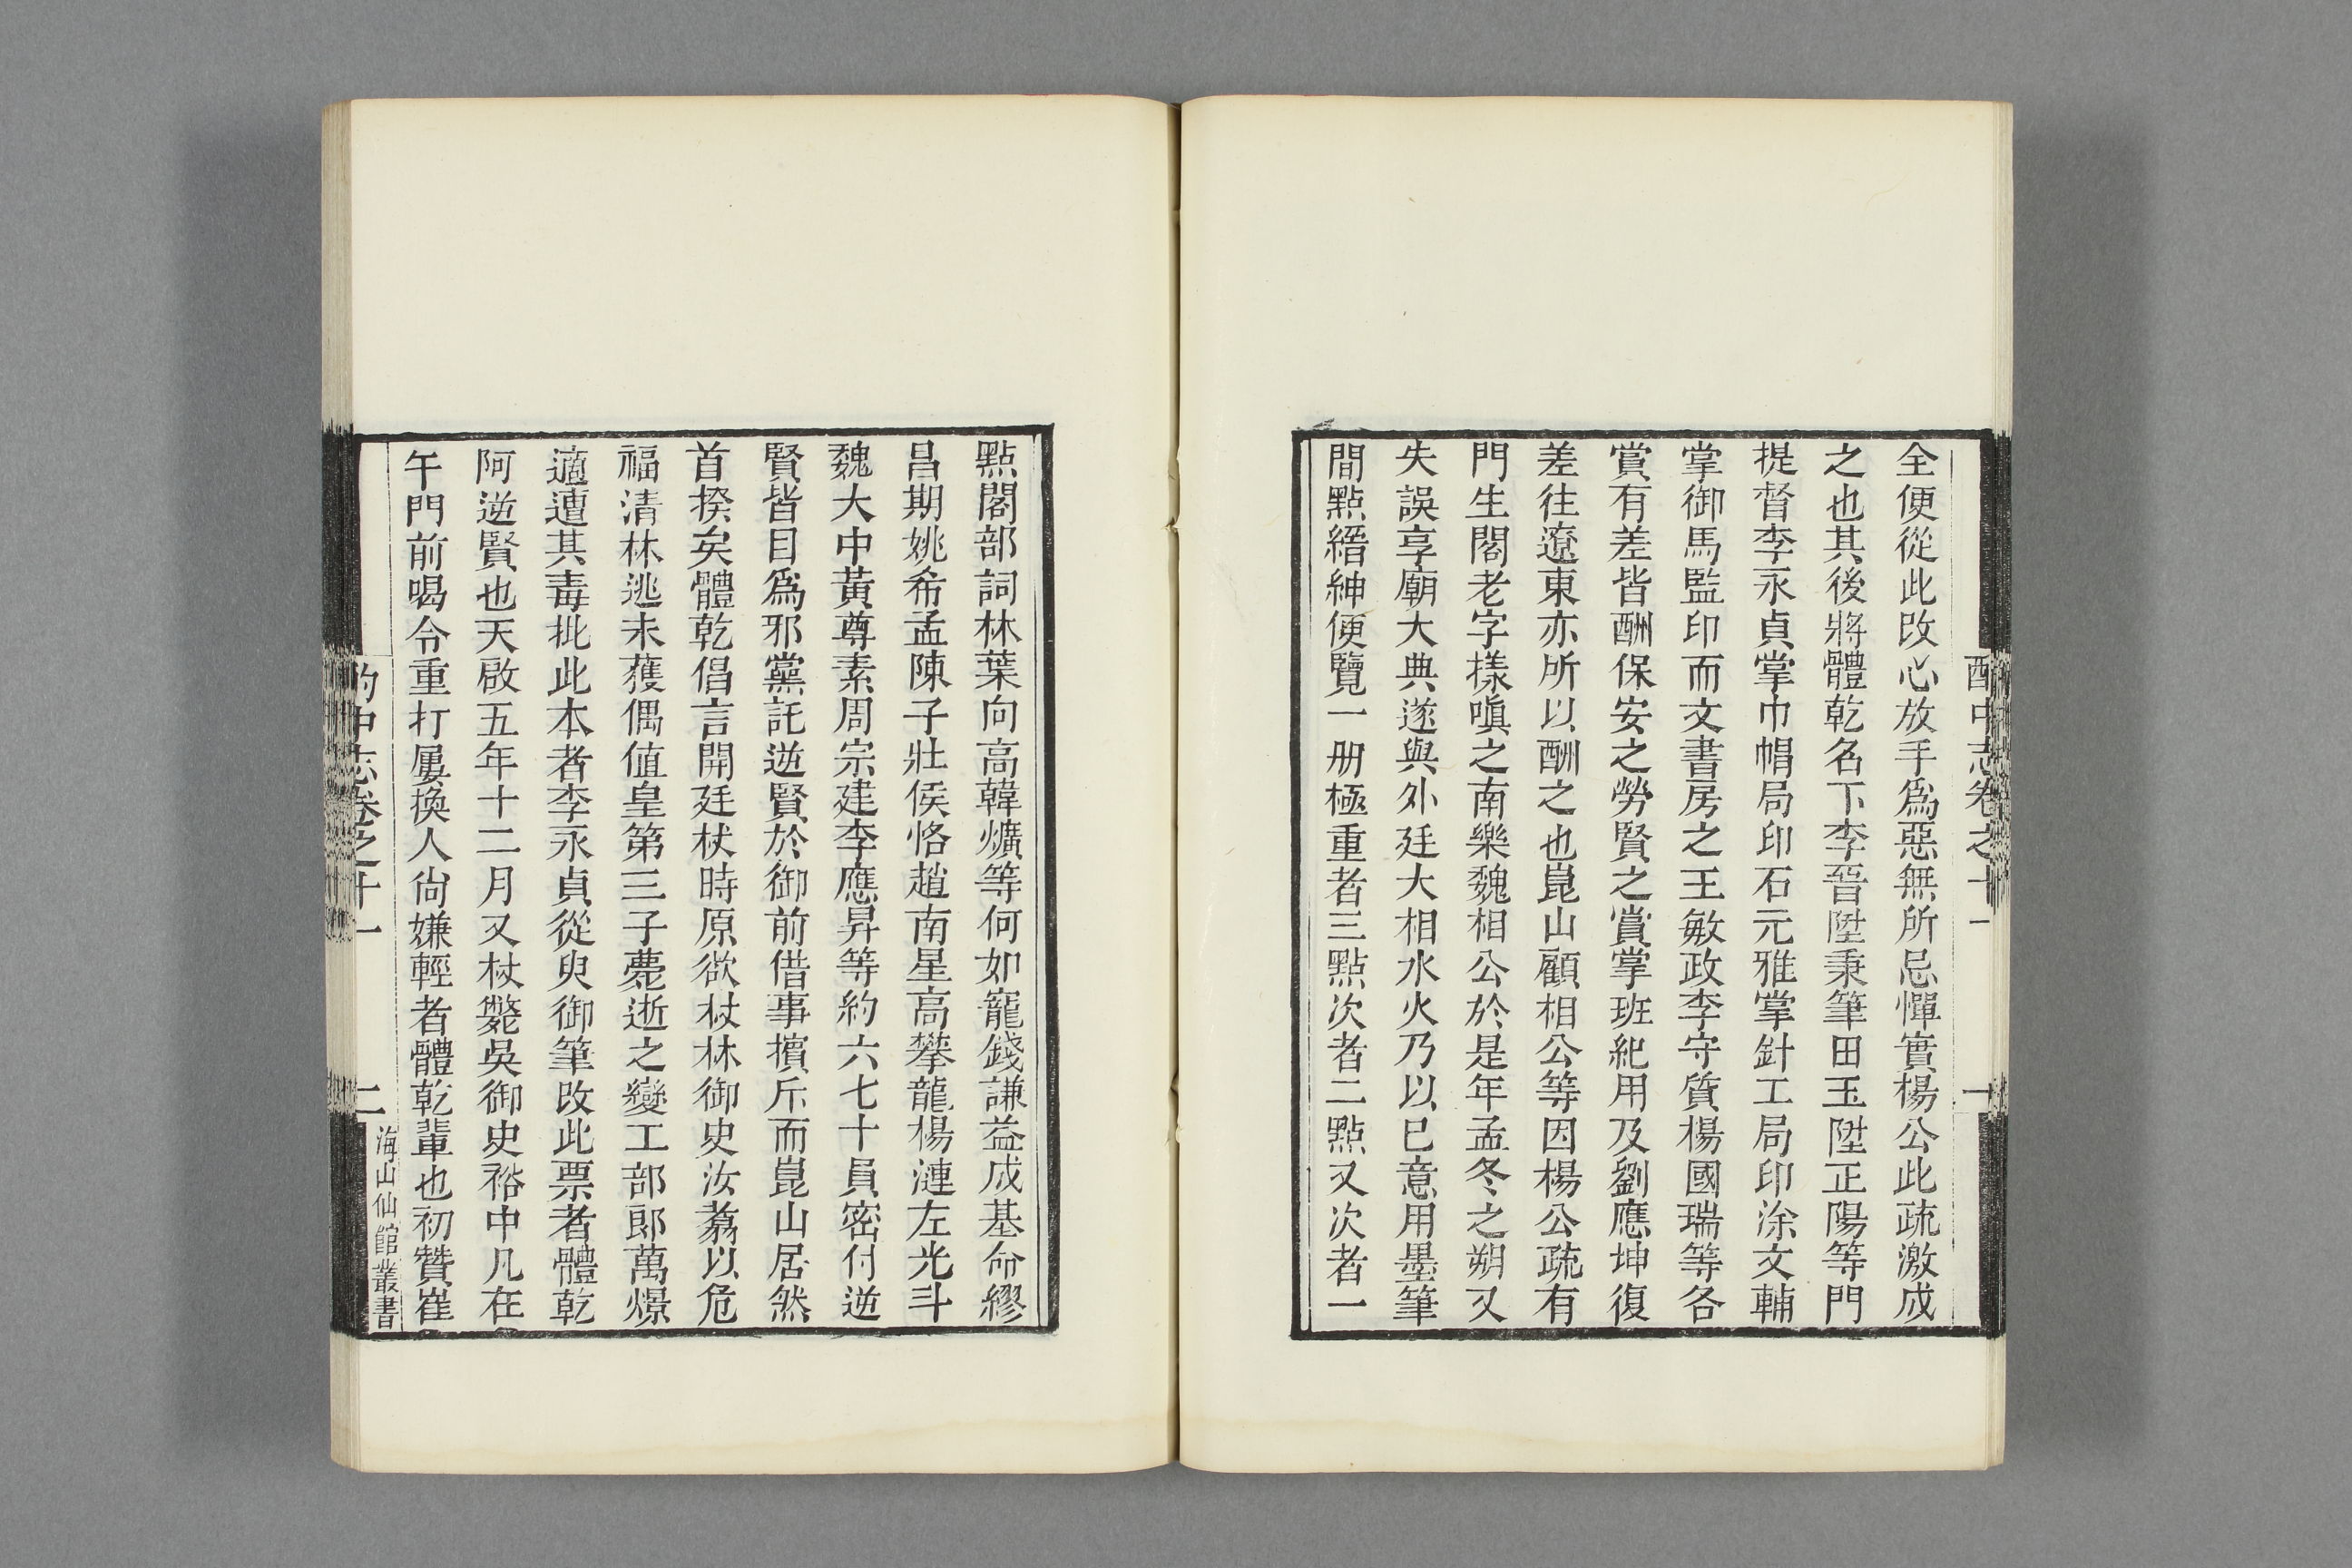 酌中志卷之十一
一
全便從此改心放手爲惡無所忌憚實楊公此疏激成
之也其後將體乾名下李晉陞秉筆田玉陞正陽等門
提督李永貞掌巾帽局印石元雅掌針工局印涂文輔
掌御馬監印而文書房之王敏政李守質楊國瑞等各
賞有差皆酬保安之勞賢之賞掌班紀用及劉應坤復
差往遼東亦所以酬之也崑山顧相公等因楊公疏有
門生閣老字樣嗔之南樂魏相公於是年孟冬之朔又
失誤享廟大典遂與外廷大相水火乃以已意用墨筆
間點縉紳便覽一册極重者三點次者二點又次者一
點閣部詞林葉向高韓爌等何如寵錢謙益成基命繆
昌期姚希孟陳子壯侯恪趙南星高攀龍楊漣左光斗
魏大中黃尊素周宗建李應昇等約六七十員密付逆
賢皆目爲邪黨託逆賢於御前借事擯斥而崑山居然
首揆矣體乾倡言開廷杖時原欲杖林御史汝翥以危
福清林逃未獲偶值皇第三子薨逝之變工部郎萬燝
適遭其毒批此本者李永貞從臾御筆改此票者體乾
阿逆賢也天啟五年十二月又杖斃吳御史裕中凡在
午門前喝令重打屢換人尙嫌輕者體乾輩也初贊崔
酌中志卷之十一
二
海山仙館叢書